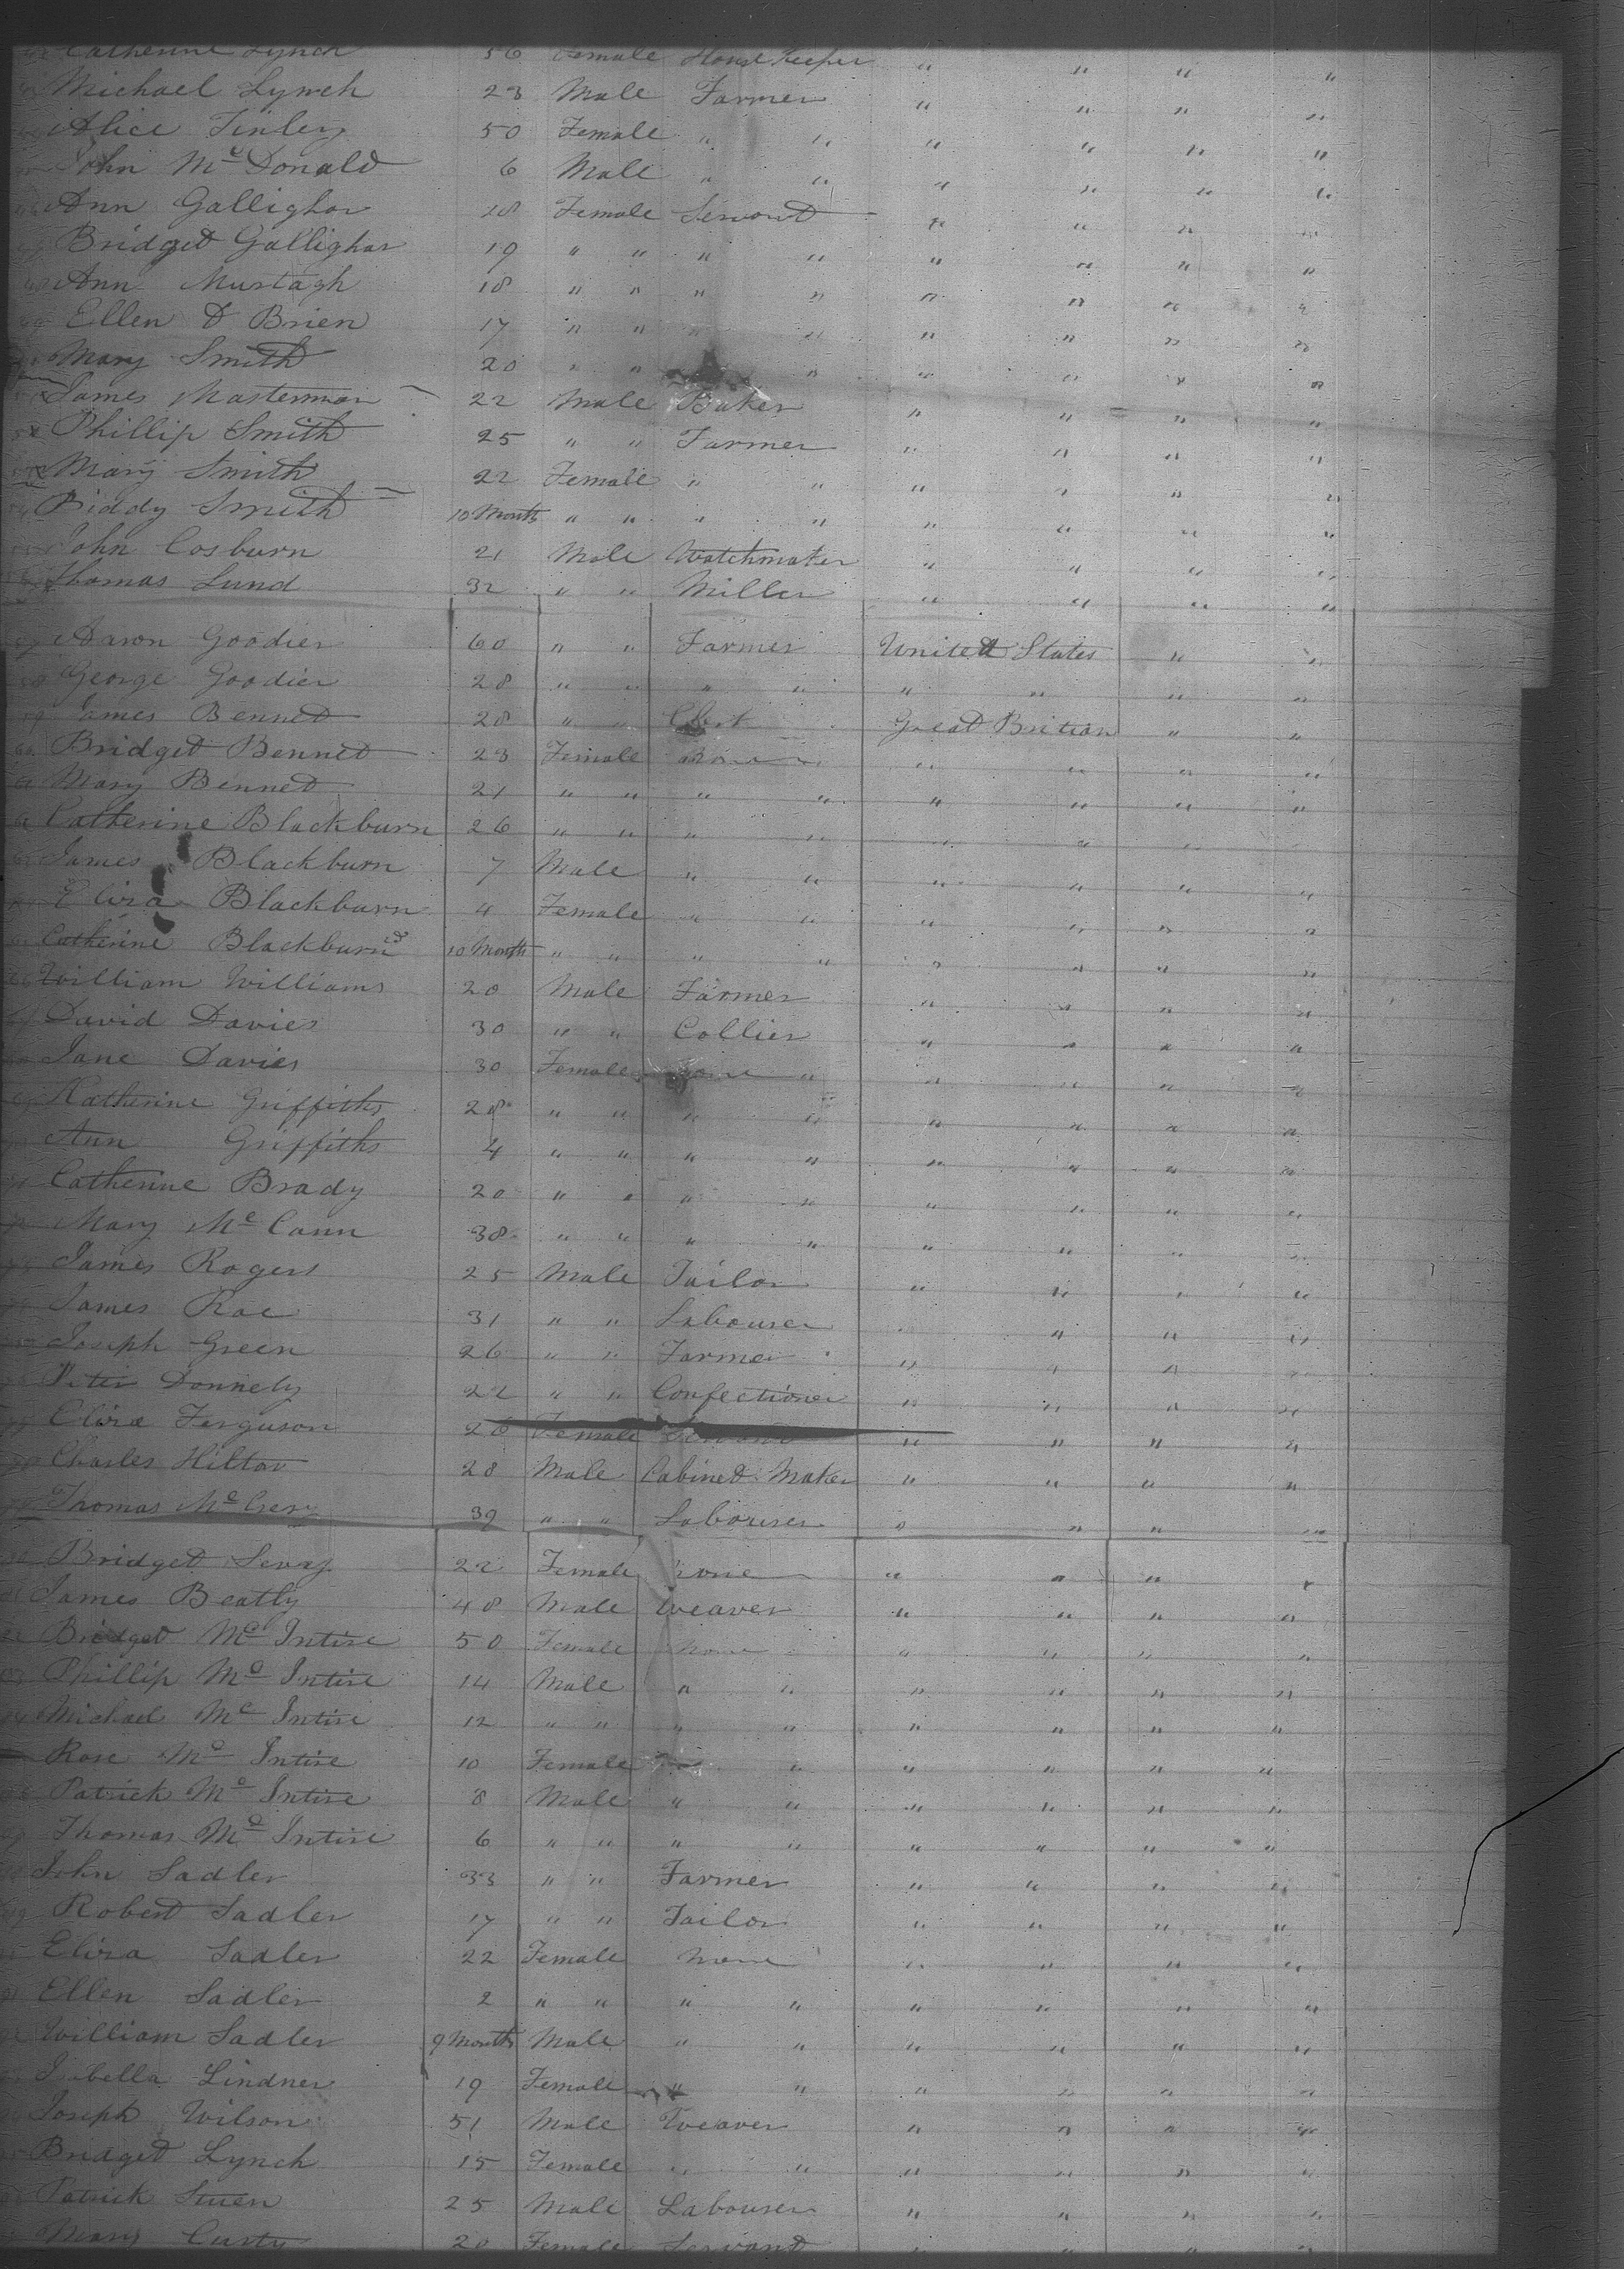 Catherine Lynch 56 Female House Keeper " " " "
Michael Lynch 23 Male Farmer " " " "
Alice Finley 50 Female " " " " " "
John Mc Donald 6 Male " " " " " "
Ann Gallighar 18 Female Servant " " " "
Bridget Gallighar 19 " " " " " " " "
Ann Murtagh 18 " " " " " " " "
Ellen O Brien 17 " " " " " " " "
Mary Smith 20 " " " " " " "
James Masterman 22 Male Baker " " " "
Phillip Smith 25 " " Farmer " " " "
Mary Smith 22 Female " " " " " "
Biddy Smith 10 Month " " " " " " " "
John Cosburn 21 Male Watchmaker " " " "
Thomas Lund 32 " " Miller " " " "
57 Aaron Goodier 60 " " Farmer United States " "
58 George Goodier 28 " " " " " " " "
59 James Bennet 28 " " Great Britian " "
60 Bridget Bennet 23 Female None " " " "
61 Mary Bennet 21 " " " " " " " "
62 Catherine Blackburn 26 " " " " " " " "
63 James Blackburn 7 Male " " " " " "
64 Eliza Blackburn 4 Female " " " " " "
65 Catherine Blackburn 10 Month " " " " " " " "
66 William Williams 20 Male Farmer " " " "
67 David Davies 30 " " Collier " " " "
68 Jane Davies 30 Female None " " " " "
69 Katherine Griffiths 28 " " " " " " " "
70 Ann Griffiths 4 " " " " " " " "
71 Catherine Brady 20 " " " " " " " "
72 Mary Mc Cann 38 " " " " " " " "
73 James Rogers 25 Male Tailor " " " "
74 James Rae 31 " " Labourer " " " "
75 Joseph Green 26 " " Farmer " " " "
76 Peter Donnely 22 " " Confectioner " " " "
77 Eliza Ferguson 26 Female Servant " " " "
78 Charles Hilton 28 Male Cabinet Maker " " " "
79 Thomas Mc 39 " " Labourer " " " "
80 Bridget 22 Female None " " " "
81 James Beatty 48 Male Weaver " " " "
82 Bridget Mc Intire 50 Female None " " " "
83 Phillip Mc Intire 14 Male " " " " " "
84 Michael Mc Intire 12 " " " " " " " "
Rose Mc Intire 10 Female " " " " " "
86 Patrick Mc Intire 8 Male " " " " " "
87 Thomas Mc Intire 6 " " " " " " " "
88 John Sadler 33 " " Farmer " " " "
89 Robert Sadler 17 " " Tailor " " " "
Eliza Sadler 22 Female None " " " "
91 Ellen Sadler 2 " " " " " " " "
92 William Sadler 9 Months Male " " " " " "
Isabella Lindner 19 Female " " " " " "
Joseph Wilson 51 Male Weaver " " " "
Bridget Lynch 15 Female " " " " " "
Patrick 25 Male Labourer " " " "
Mary 20 Female Servant " " " "